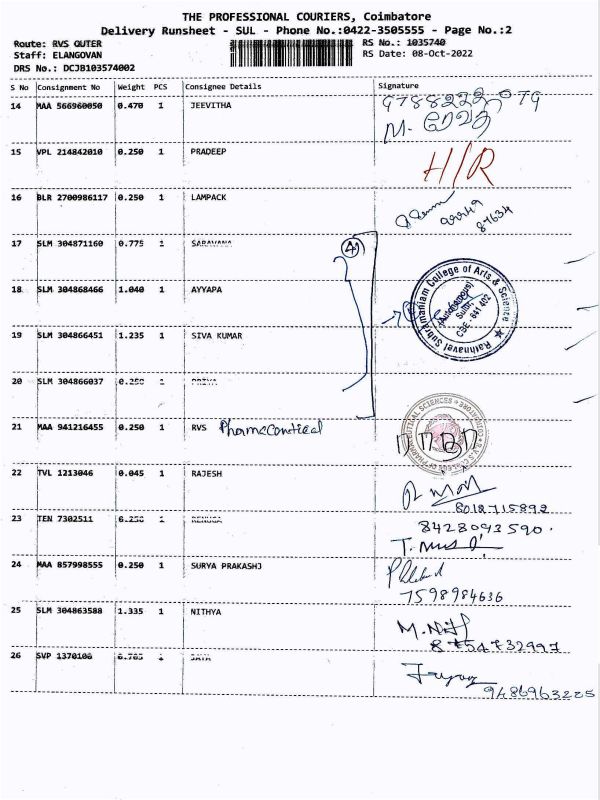 THE PROFESSIONAL COURIERS, Coimbatore
Delivery Runsheet - SUL - Phone No.:0422-3505555 - Page No.:2
Route: RVS OUTER
RS No.: 1035740
Staff: ELANGOVAN
RS Date: 08-Oct-2022
DRS No.: DCJB103574002
S No Consignment No Weight PCS Consignee Details Signature
14 MAA 566960050 0.470 1 JEEVITHA
M. ரேவதி
15 VPL 214842010 0.250 1 PRADEEP H/R
16 BLR 2700986117 0.250 1 LAMPACK
87634
17 SLM 304871160 0.775 1 SARAVANA 4
18 SLM 304868466 1.040 1 AYYAPA
Rathnavel Subramaniam College of Arts & Science
(Autonomous)
Sulur,
CBE - 641 402
19 SLM 304866451 1.235 1 SIVA KUMAR
20 SLM 304866037 0.250 1 PRIYA
21 MAA 941216455 0.250 1 RVS Pharmaceutical
22 TVL 1213046 0.045 1 RAJESH
8018715892
23 TEN 7302511 0.250 1 RENUGA
8428093590.
24 MAA 857998555 0.250 1 SURYA PRAKASHJ
7598984636
25 SLM 304863588 1.335 1 NITHYA
8754732997
26 SVP 1370106 1 JAYA
9486963225